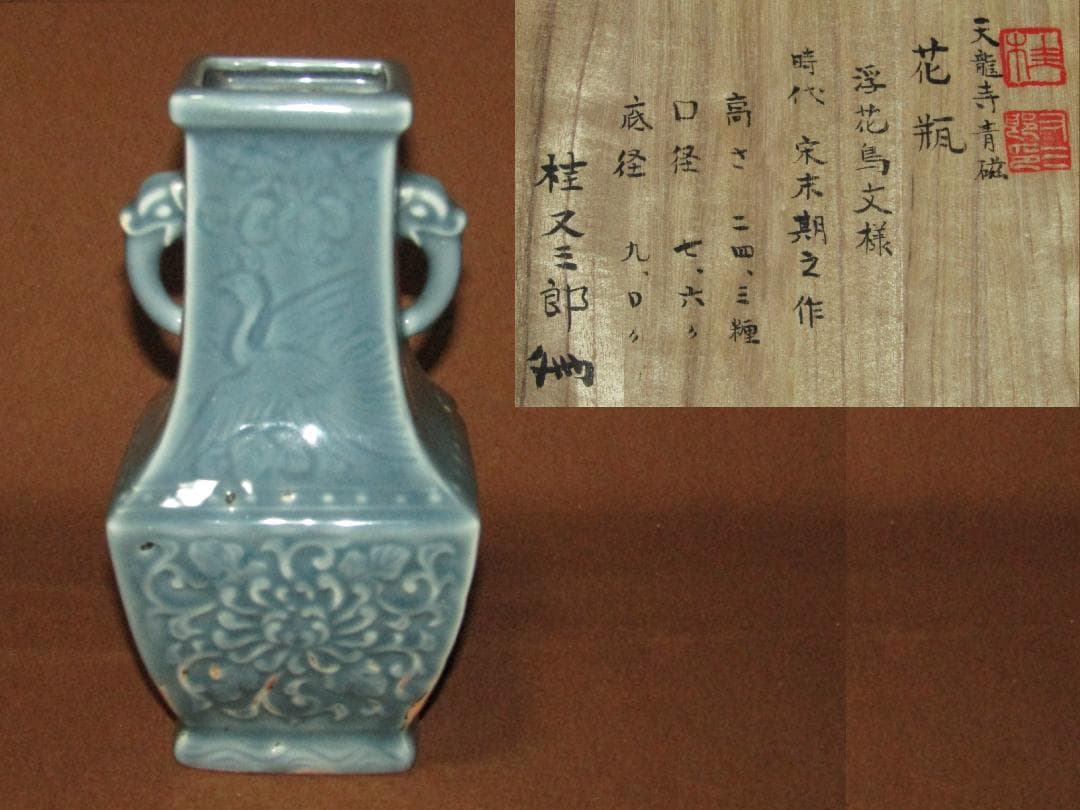 天龍寺青磁
花瓶
浮花鳥文様
時代 宋末期之作
高さ 二四、三糎
口径 七、六〃
底径 九、〇〃
桂又三郎